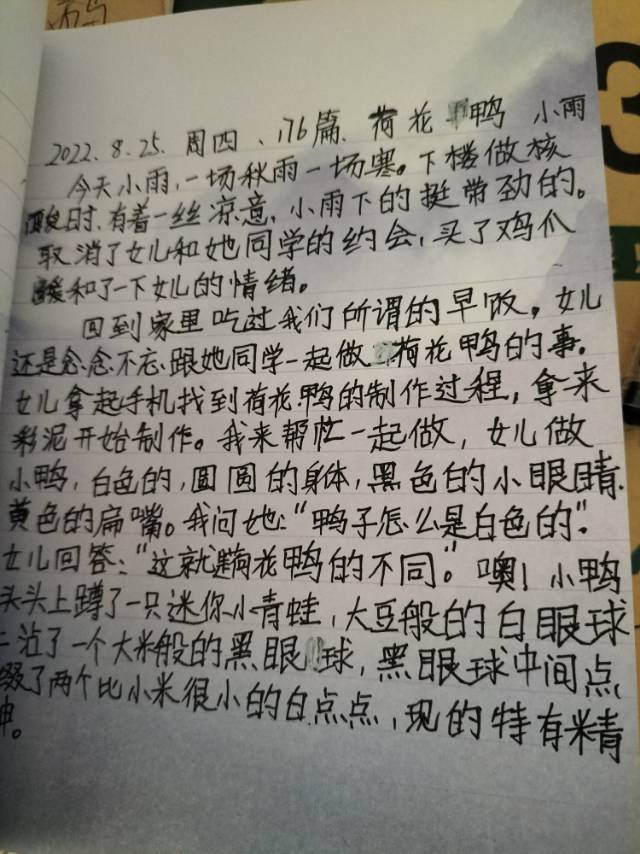 2022.8.25.周四、176篇.荷花鸭 小雨
今天小雨,一场秋雨一场寒。下楼做核
酸时,有着一丝凉意,小雨下的挺带劲的。
取消了女儿和她同学的约会,买了鸡爪
缓和了一下女儿的情绪。
回到家里吃过我们所谓的早饭,女儿
还是念念不忘跟她同学一起做荷花鸭的事。
女儿拿起手机找到荷花鸭的制作过程,拿来
彩泥开始制作。我来帮忙一起做,女儿做
小鸭,白色的,圆圆的身体,黑色的小眼睛.
黄色的扁嘴。我问她:“鸭子怎么是白色的”.
女儿回答:“这就是荷花鸭的不同”。噢!小鸭
头头上蹲了一只迷你小青蛙,大豆般的白眼球
上沾了一个大米般的黑眼球,黑眼球中间点
缀了两个比小米很小的白点点,现的特有精
神。
3